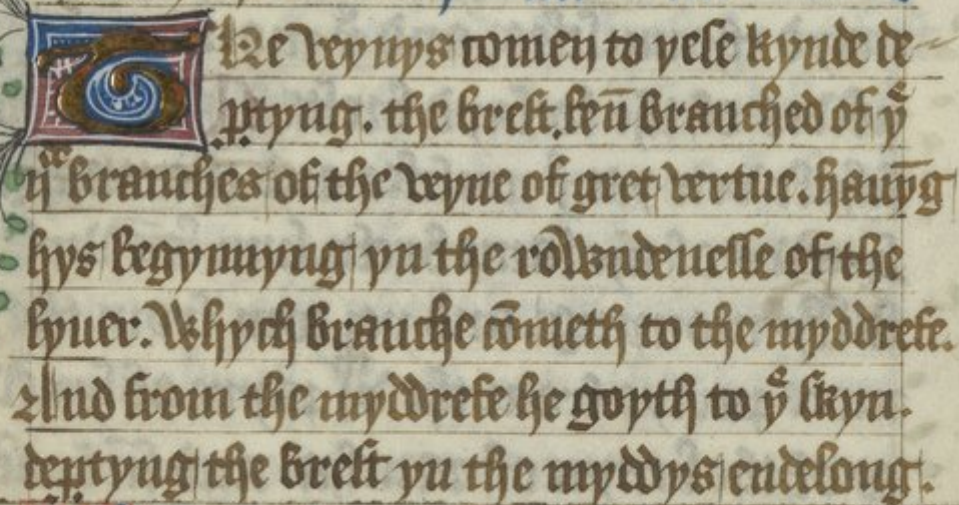 The veynys comen to yese kynde de
ꝑtyng. the brest. ben̄ branched of yͤ
ijͤ branches of the veyne of gret vertue. hauyn̄g
hys begynnyng yn the rowndenesse of the
lyuer. Whych branche cōmeth to the myddrefe.
And from the myddrefe he goyth to yͤ skyn.
deꝑtyng the brest yn the myddys endelong.